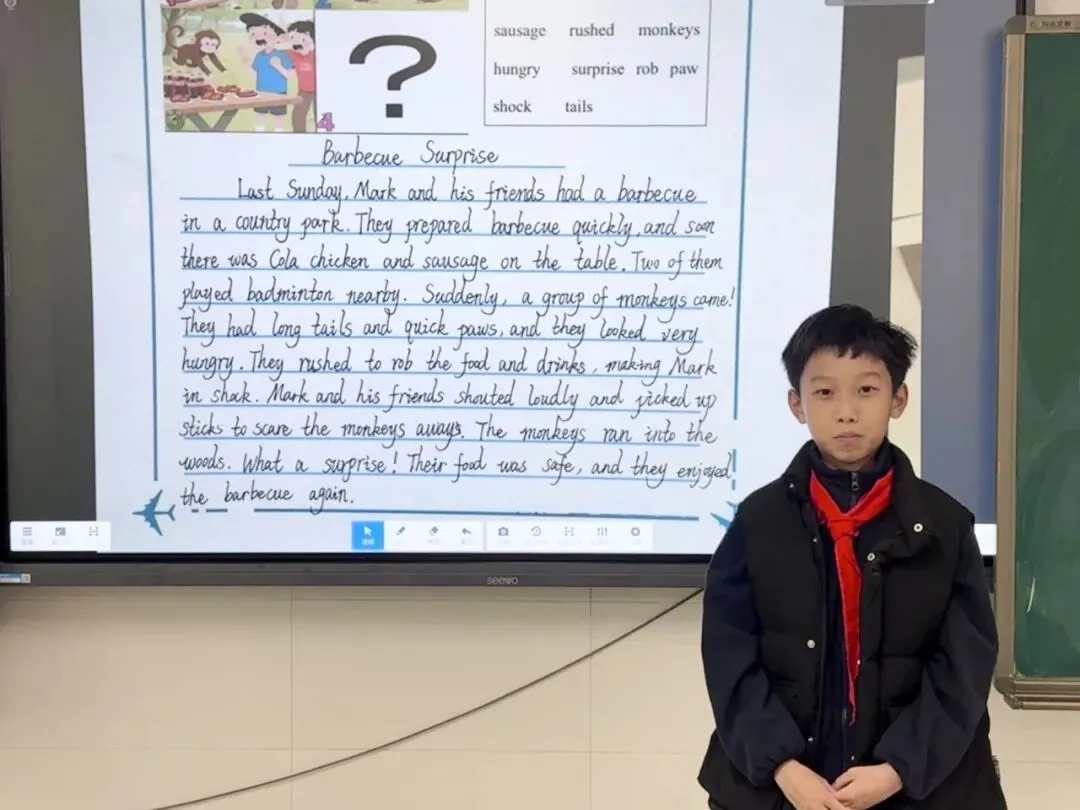 sausage rushed monkeys
hungry surprise rob paw
shock tails
4
?
Barbecue Surprise
Last Sunday, Mark and his friends had a barbecue
in a country park. They prepared barbecue quickly, and soon
there was Cola chicken and sausage on the table. Two of them
played badminton nearby. Suddenly, a group of monkeys came!
They had long tails and quick paws, and they looked very
hungry. They rushed to rob the food and drinks, making Mark
in shock. Mark and his friends shouted loudly and picked up
sticks to scare the monkeys aways. The monkeys ran into the
woods. What a surprise! Their food was safe, and they enjoyed
the barbecue again.
seewo